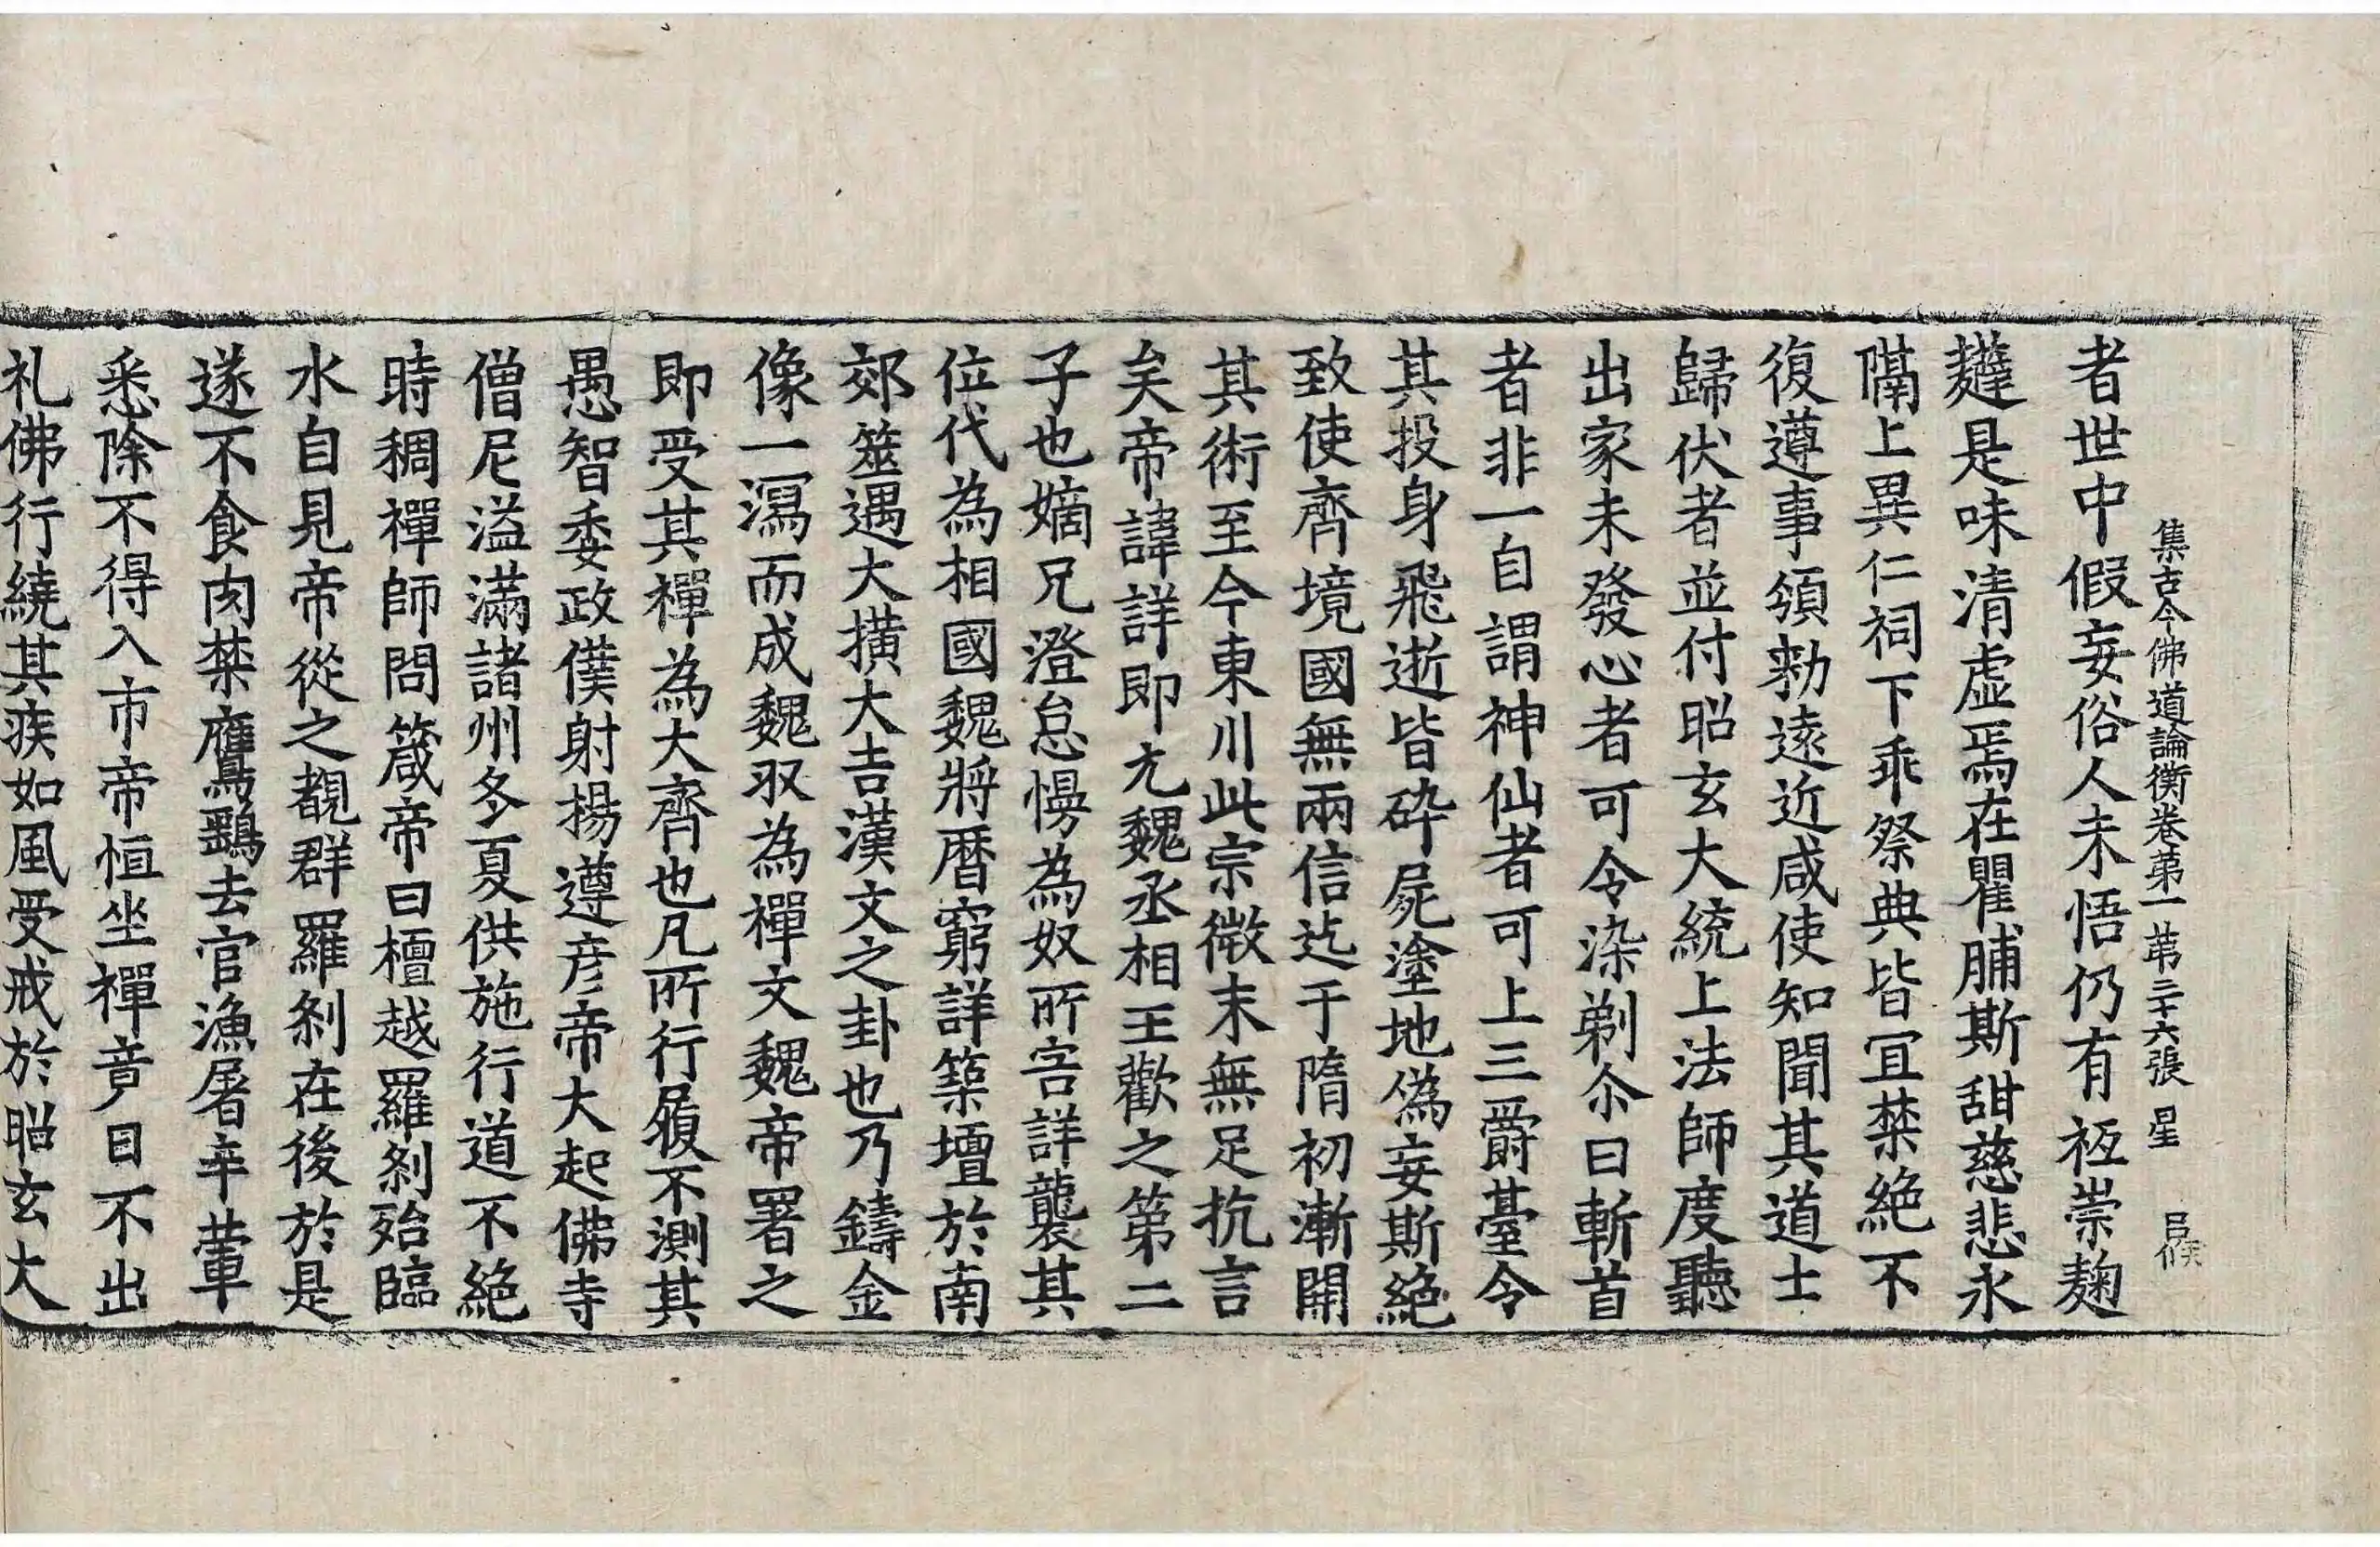 集古今佛道論衡卷第一 第二十六張 星
者世中假妄俗人未悟仍有祗崇麹
糵是味清虛焉在瞿脯斯甜慈悲永
隔上異仁祠下乖祭典皆宜禁絕不
復遵事頒勑遠近咸使知聞其道士
歸伏者並付昭玄大統上法師度聽
出家未發心者可令染剃尒日斬首
者非一自謂神仙者可上三爵臺令
其投身飛逝皆碎屍塗地偽妄斯絕
致使齊境國無兩信迄于隋初漸開
其術至今東川此宗微末無足抗言
矣帝諱詳即元魏丞相王歡之第二
子也嫡兄澄怠慢為奴所害詳襲其
位代為相國魏將曆窮詳築壇於南
郊筮遇大橫大吉漢文之卦也乃鑄金
像一瀉而成魏収為禪文魏帝署之
即受其禪為大齊也凡所行履不測其
愚智委政僕射楊遵彥帝大起佛寺
僧尼溢滿諸州冬夏供施行道不絕
時稠禪師問箴帝曰檀越羅剎殆臨
水自見帝從之覩群羅剎在後於是
遂不食肉禁鷹鷂去官漁屠辛葷
悉除不得入市帝恒坐禪竟日不出
礼佛行繞其疾如風受戒於昭玄大